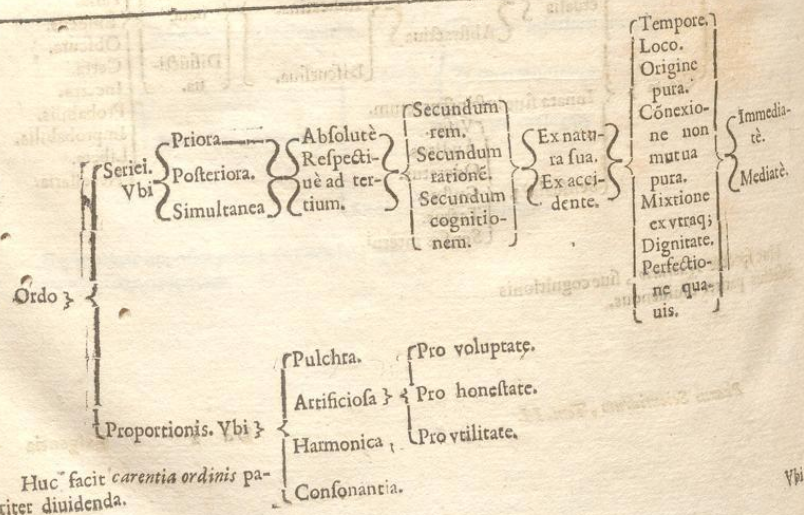 Ordo
Seriei.
Vbi
Priora
Poſteriora.
Simultanea
Abſolutè
Reſpecti-
uè ad ter-
tium.
Secundum
rem.
Secundum
rationé.
Secundum
cognitio-
nem.
Ex natu-
ra ſua.
Ex acci-
dente.
Tempore.
Loco.
Origine
pura.
Cónexio-
ne non
mutua
pura.
Mixtione
ex vtraq;
Dignitate.
Perfectio-
ne qua-
uis.
Immedia-
tè.
Mediatè.
Proportionis. Vbi
Pulchra.
Artificioſa
Harmonica
Conſonantia.
Pro voluptate.
Pro honeſtate.
Pro vtilitate.
Huc facit carentia ordinis pa-
riter diuidenda.
Vbi